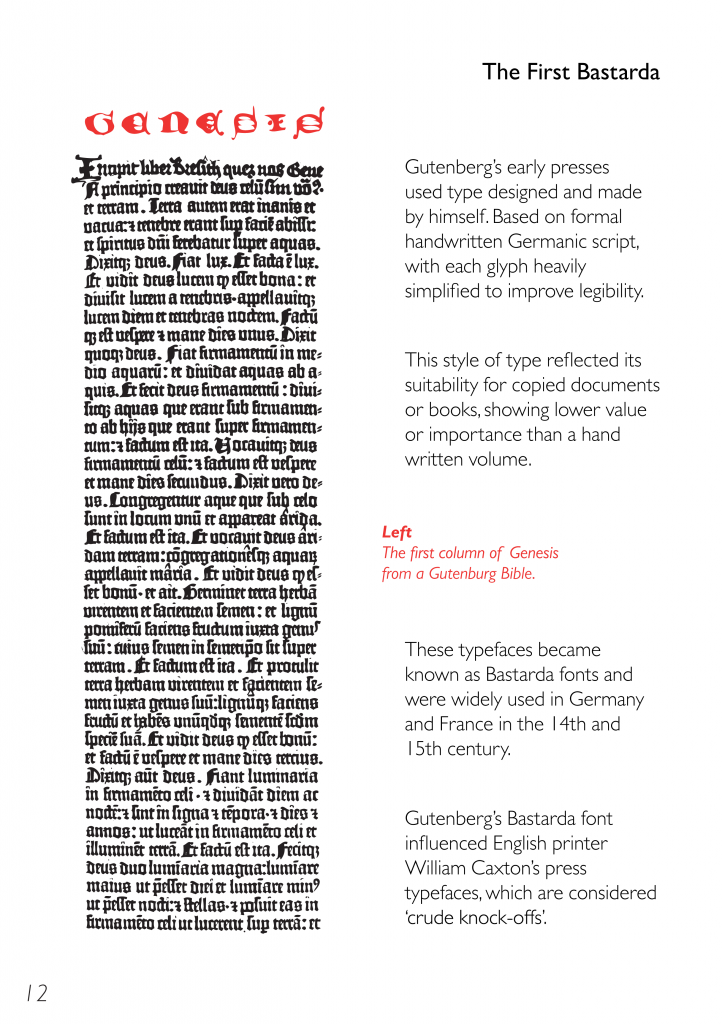 The First Bastarda
GENESIS
Incipit liber Bresith quez nos Gene
A principio creauit deus celū sim vō?.
et terram. Terra autem erat inanis et
vacua: ⁊ tenebre erant sup faciē abissi:
et spiritus dñi ferebatur super aquas.
Dixitqꝫ deus. Fiat lux. Et facta ē lux.
Et vidit deus lucem ꝙ esset bona: et
diuisit lucem a tenebris. appellauitqꝫ
lucem diem et tenebras noctem. Factū
qꝫ est vespere ⁊ mane dies vnus. Dixit
quoqꝫ deus. Fiat firmamentū in me-
dio aquarū: et diuidat aquas ab a-
quis. Et fecit deus firmamentū: diui-
sitqꝫ aquas que erant sub firmamen-
to ab hijs que erant super firmamen-
tum: ⁊ factum est ita. Vocauitqꝫ deus
firmamentū celū: ⁊ factum est vespere
et mane dies secundus. Dixit vero de-
us. Congregentur aque que sub celo
sunt in locum vnū et appareat arida.
Et factum est ita. Et vocauit deus ari-
dam terram: cōgregationesqꝫ aquaꝝ
appellauit maria. Et vidit deus ꝙ es-
set bonū. et ait. Germinet terra herbā
virentem et facientem semen: et lignū
pomiferū faciens fructum iuxta genus
suū: cuius semen in semetipo sit super
terram. Et factum est ita. Et protulit
terra herbam virentem et facientem se-
men iuxta genus suū: lignūqꝫ faciens
fructū et habēs vnūqdqꝫ sementē scdm
speciē suā. Et vidit deus ꝙ esset bonū:
et factū ē vespere et mane dies tercius.
Dixitqꝫ aūt deus. Fiant luminaria
in firmamēto celi. ⁊ diuidāt diem ac
noctē: ⁊ sint in signa ⁊ tēpora. ⁊ dies ⁊
annos: ut luceāt in firmamēto celi et
illuminēt terrā. Et factū est ita. Fecitqꝫ
deus duo lumīaria magna: lumīare
maius ut pesset diei et lumīare minꝰ
ut pesset nocti: ⁊ stellas. ⁊ posuit eas in
firmamēto celi ut lucerent sup terrā: et
Gutenberg’s early presses
used type designed and made
by himself. Based on formal
handwritten Germanic script,
with each glyph heavily
simplified to improve legibility.
This style of type reflected its
suitability for copied documents
or books, showing lower value
or importance than a hand
written volume.
Left
The first column of Genesis
from a Gutenburg Bible.
These typefaces became
known as Bastarda fonts and
were widely used in Germany
and France in the 14th and
15th century.
Gutenberg’s Bastarda font
influenced English printer
William Caxton’s press
typefaces, which are considered
‘crude knock-offs’.
12